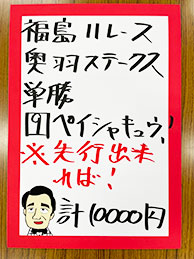 福島11レース
奥羽ステークス
単勝
⑨ペイシャキュウ!
※先行出来
れば!
計10000円